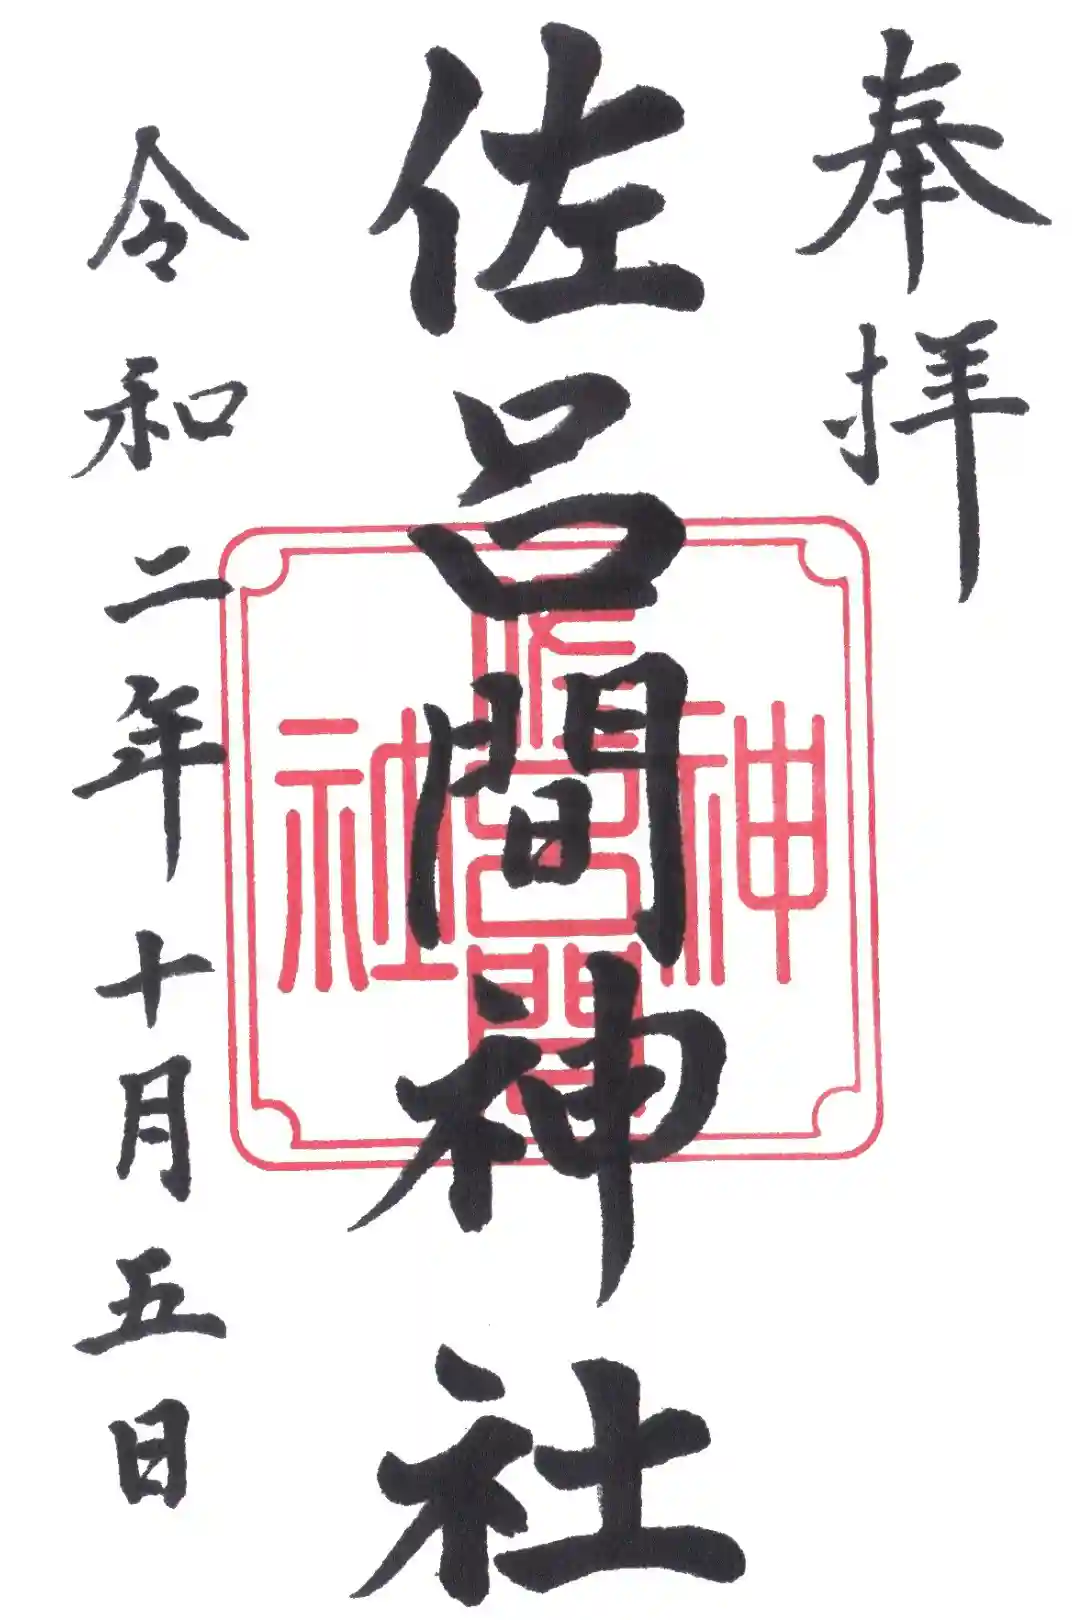 奉拝
佐呂間神社
神
佐呂間
社
令和二年十月五日